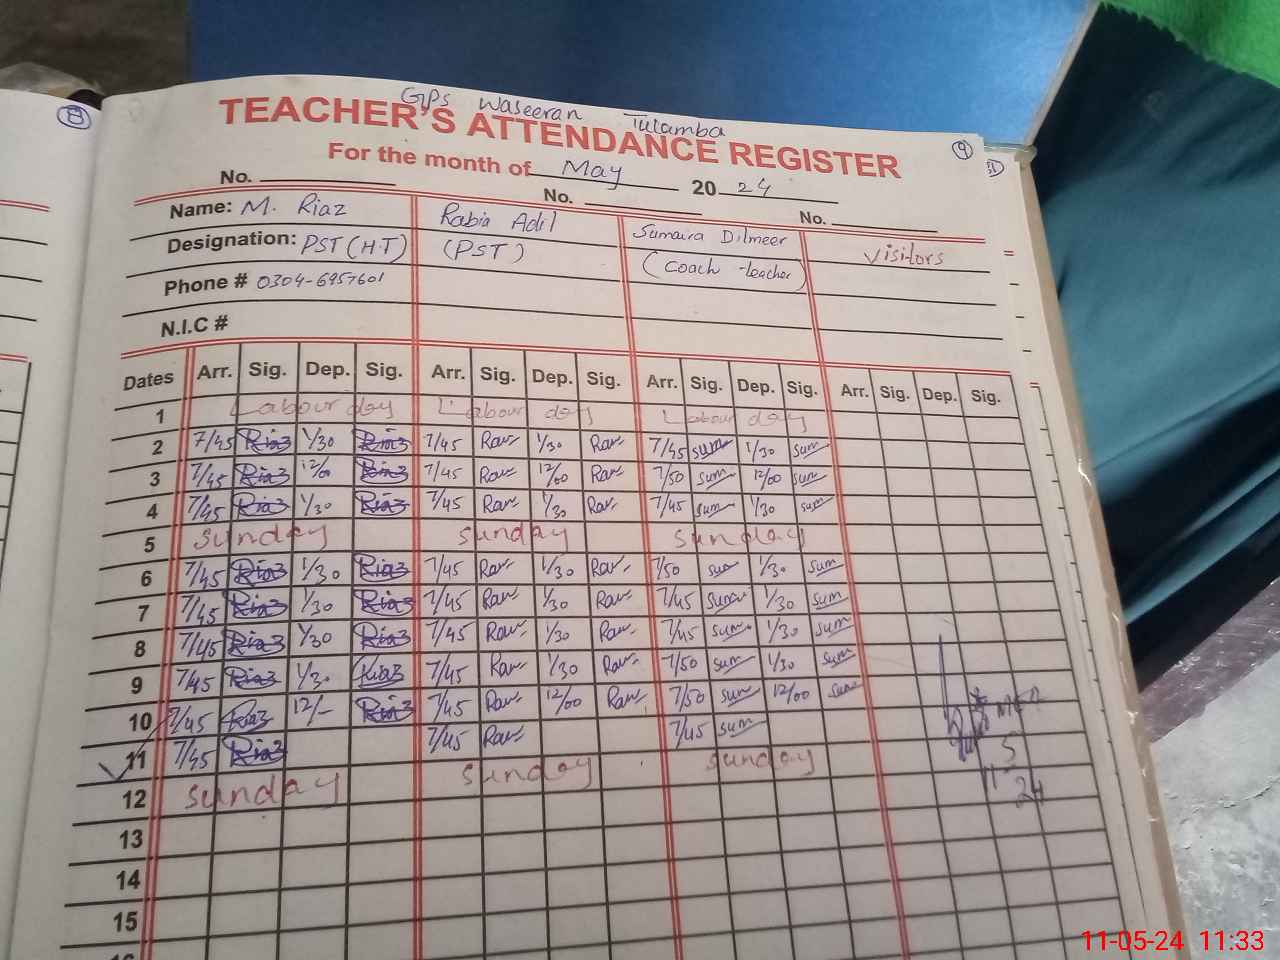 8
GPS Waseeran Tulamba
TEACHER'S ATTENDANCE REGISTER
9
31
For the month of May 2024
No. No. No.
Name: M. Riaz Rabia Adil Sumaira Dilmeer Visitors
Designation: PST (H.T) (PST) (Coach teacher)
Phone # 0304-6957601
N.I.C #
Dates Arr. Sig. Dep. Sig. Arr. Sig. Dep. Sig. Arr. Sig. Dep. Sig. Arr. Sig. Dep. Sig.
1 Labour day Labour day Labour day
2 7/45 Riaz 1/30 Riaz 7/45 Rav 1/30 Rav 7/45 sum 1/30 sum
3 7/45 Riaz 12/00 Riaz 7/45 Rav 12/00 Rav 7/50 sum 12/00 sum
4 7/45 Riaz 1/30 Riaz 7/45 Rav 1/30 Rav 7/45 sum 1/30 sum
5 sunday sunday sunday
6 7/45 Riaz 1/30 Riaz 7/45 Rav 1/30 Rav 7/50 sum 1/30 sum
7 7/45 Riaz 1/30 Riaz 7/45 Rav 1/30 Rav 7/45 sum 1/30 sum
8 7/45 Riaz 1/30 Riaz 7/45 Rav 1/30 Rav 7/45 sum 1/30 sum
9 7/45 Riaz 1/30 Riaz 7/45 Rav 1/30 Rav 7/50 sum 1/30 sum
10 7/45 Riaz 12/- Riaz 7/45 Rav 12/00 Rav 7/50 sum 12/00 sum
11 7/45 Riaz 7/45 Rav 7/45 sum
12 sunday sunday sunday
MEA
11
5
24
13
14
15
16
11-05-24 11:33